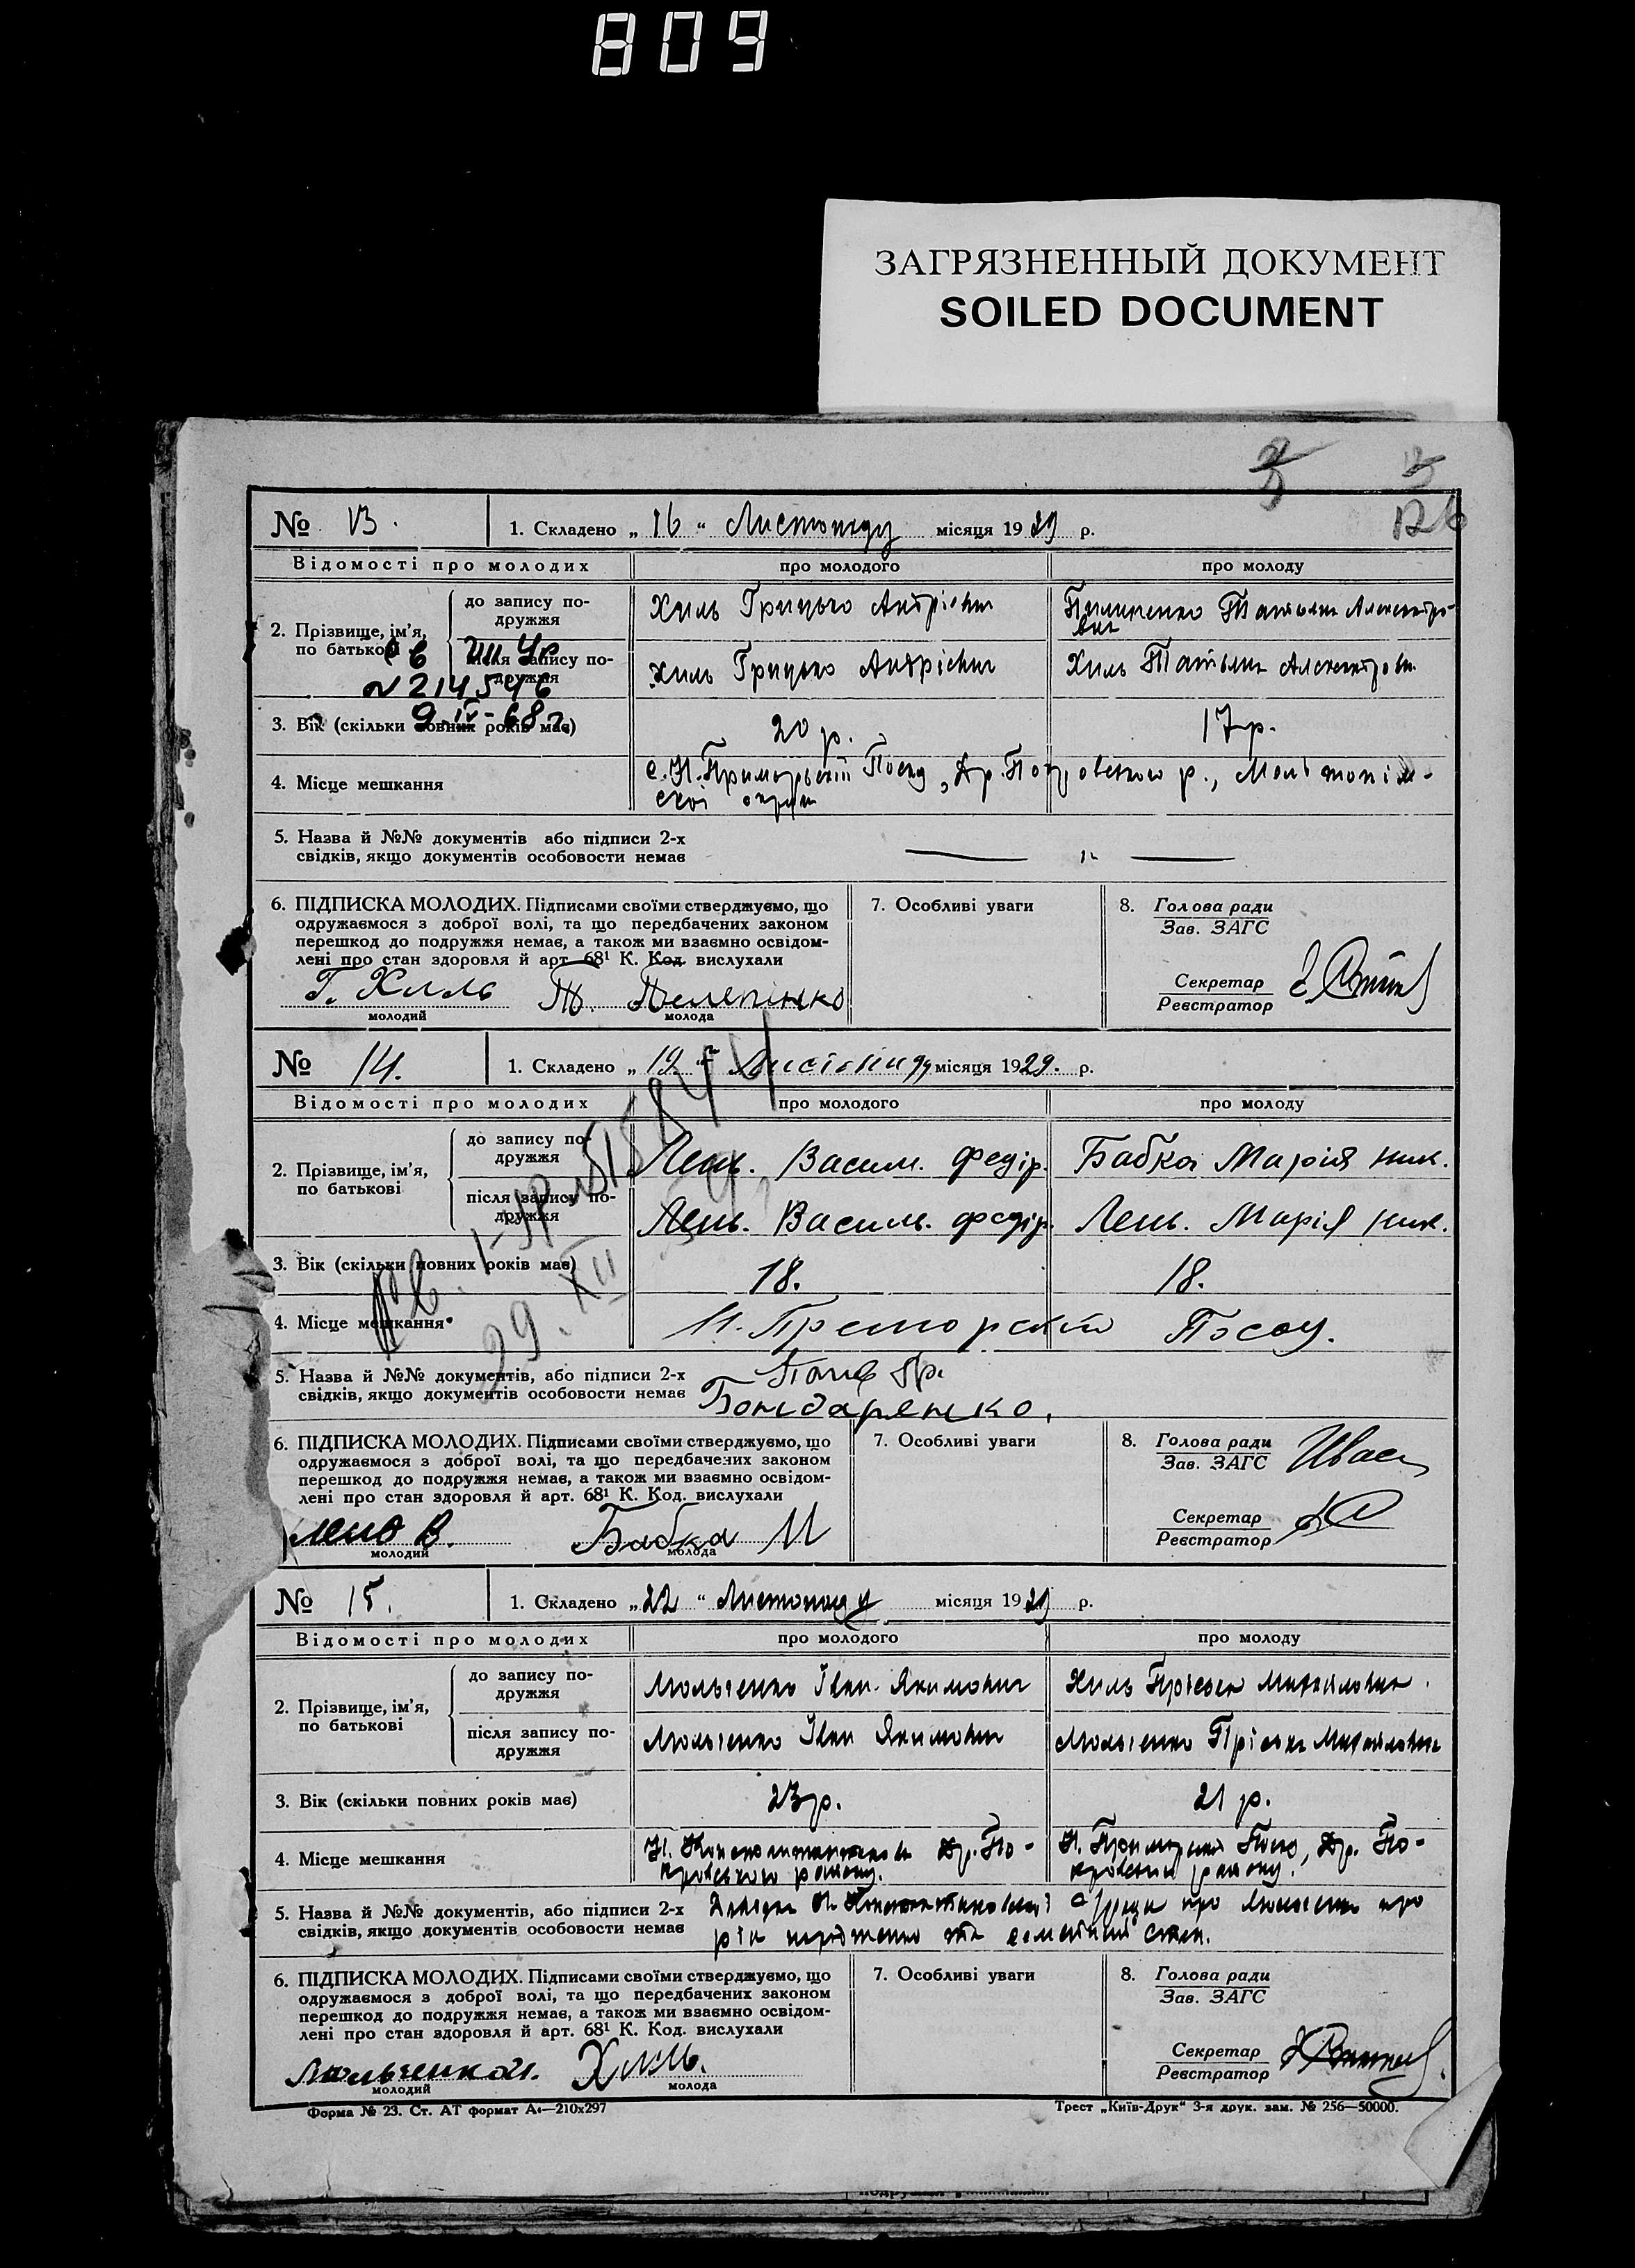 809
ЗАГРЯЗНЕННЫЙ ДОКУМЕНТ
SOILED DOCUMENT
126
№ 13. 1. Складено „16“ Листопаду місяця 1929 р.
Відомості про молодих про молодого про молоду
2. Прізвище, ім’я, по батькові
до запису подружжя Хиль Грицько Андрієвич Татьяна
після запису подружжя Хиль Грицько Андрієвич Хиль Татьяна
№ 214546
3. Вік (скільки повних років має) 20 р. 17 р.
4. Місце мешкання с. Н. Приморський Посад,
5. Назва й №№ документів або підписи 2-х
свідків, якщо документів особовости немає
6. ПІДПИСКА МОЛОДИХ. Підписами своїми стверджуємо, що 7. Особливі уваги 8. Голова ради
одружаємося з доброї волі, та що передбачених законом Зав. ЗАГС
перешкод до подружжя немає, а також ми взаємно освідом-
лені про стан здоровля й арт. 68¹ К. Код. вислухали
Г. Хиль Т. Секретар
молодий молода Реєстратор
№ 14. 1. Складено „19“ Листопаду місяця 1929. р.
Відомості про молодих про молодого про молоду
2. Прізвище, ім’я, по батькові
до запису подружжя Лень. Васил. Федір. Бабка Марія Ник.
після запису подружжя Лень. Василь. Федір. Лень. Марія Ник.
3. Вік (скільки повних років має) 18. 18.
29. XII
4. Місце мешкання Н. Преморский Посад.
5. Назва й №№ документів, або підписи 2-х
свідків, якщо документів особовости немає Бондаренко.
6. ПІДПИСКА МОЛОДИХ. Підписами своїми стверджуємо, що 7. Особливі уваги 8. Голова ради
одружаємося з доброї волі, та що передбачених законом Зав. ЗАГС
перешкод до подружжя немає, а також ми взаємно освідом-
лені про стан здоровля й арт. 68¹ К. Код. вислухали
Лень В. Бабка М Секретар
молодий молода Реєстратор
№ 15. 1. Складено „22“ Листопаду місяця 1929 р.
Відомості про молодих про молодого про молоду
2. Прізвище, ім’я, по батькові
до запису подружжя Іван Якимович Хиль Пріська Михайловна
після запису подружжя Іван Якимович Пріська Михайловна
3. Вік (скільки повних років має) 23 р. 21 р.
4. Місце мешкання Н. Константиновка Др. По- Н. Приморский Посад, Др. По-
кровського району. кровський району.
5. Назва й №№ документів, або підписи 2-х
свідків, якщо документів особовости немає
6. ПІДПИСКА МОЛОДИХ. Підписами своїми стверджуємо, що 7. Особливі уваги 8. Голова ради
одружаємося з доброї волі, та що передбачених законом Зав. ЗАГС
перешкод до подружжя немає, а також ми взаємно освідом-
лені про стан здоровля й арт. 68¹ К. Код. вислухали
Хиль. Секретар
молодий молода Реєстратор
Форма № 23. Ст. АТ формат А₄—210х297 Трест „Київ-Друк“ 3-я друк. зам. № 256—50000.